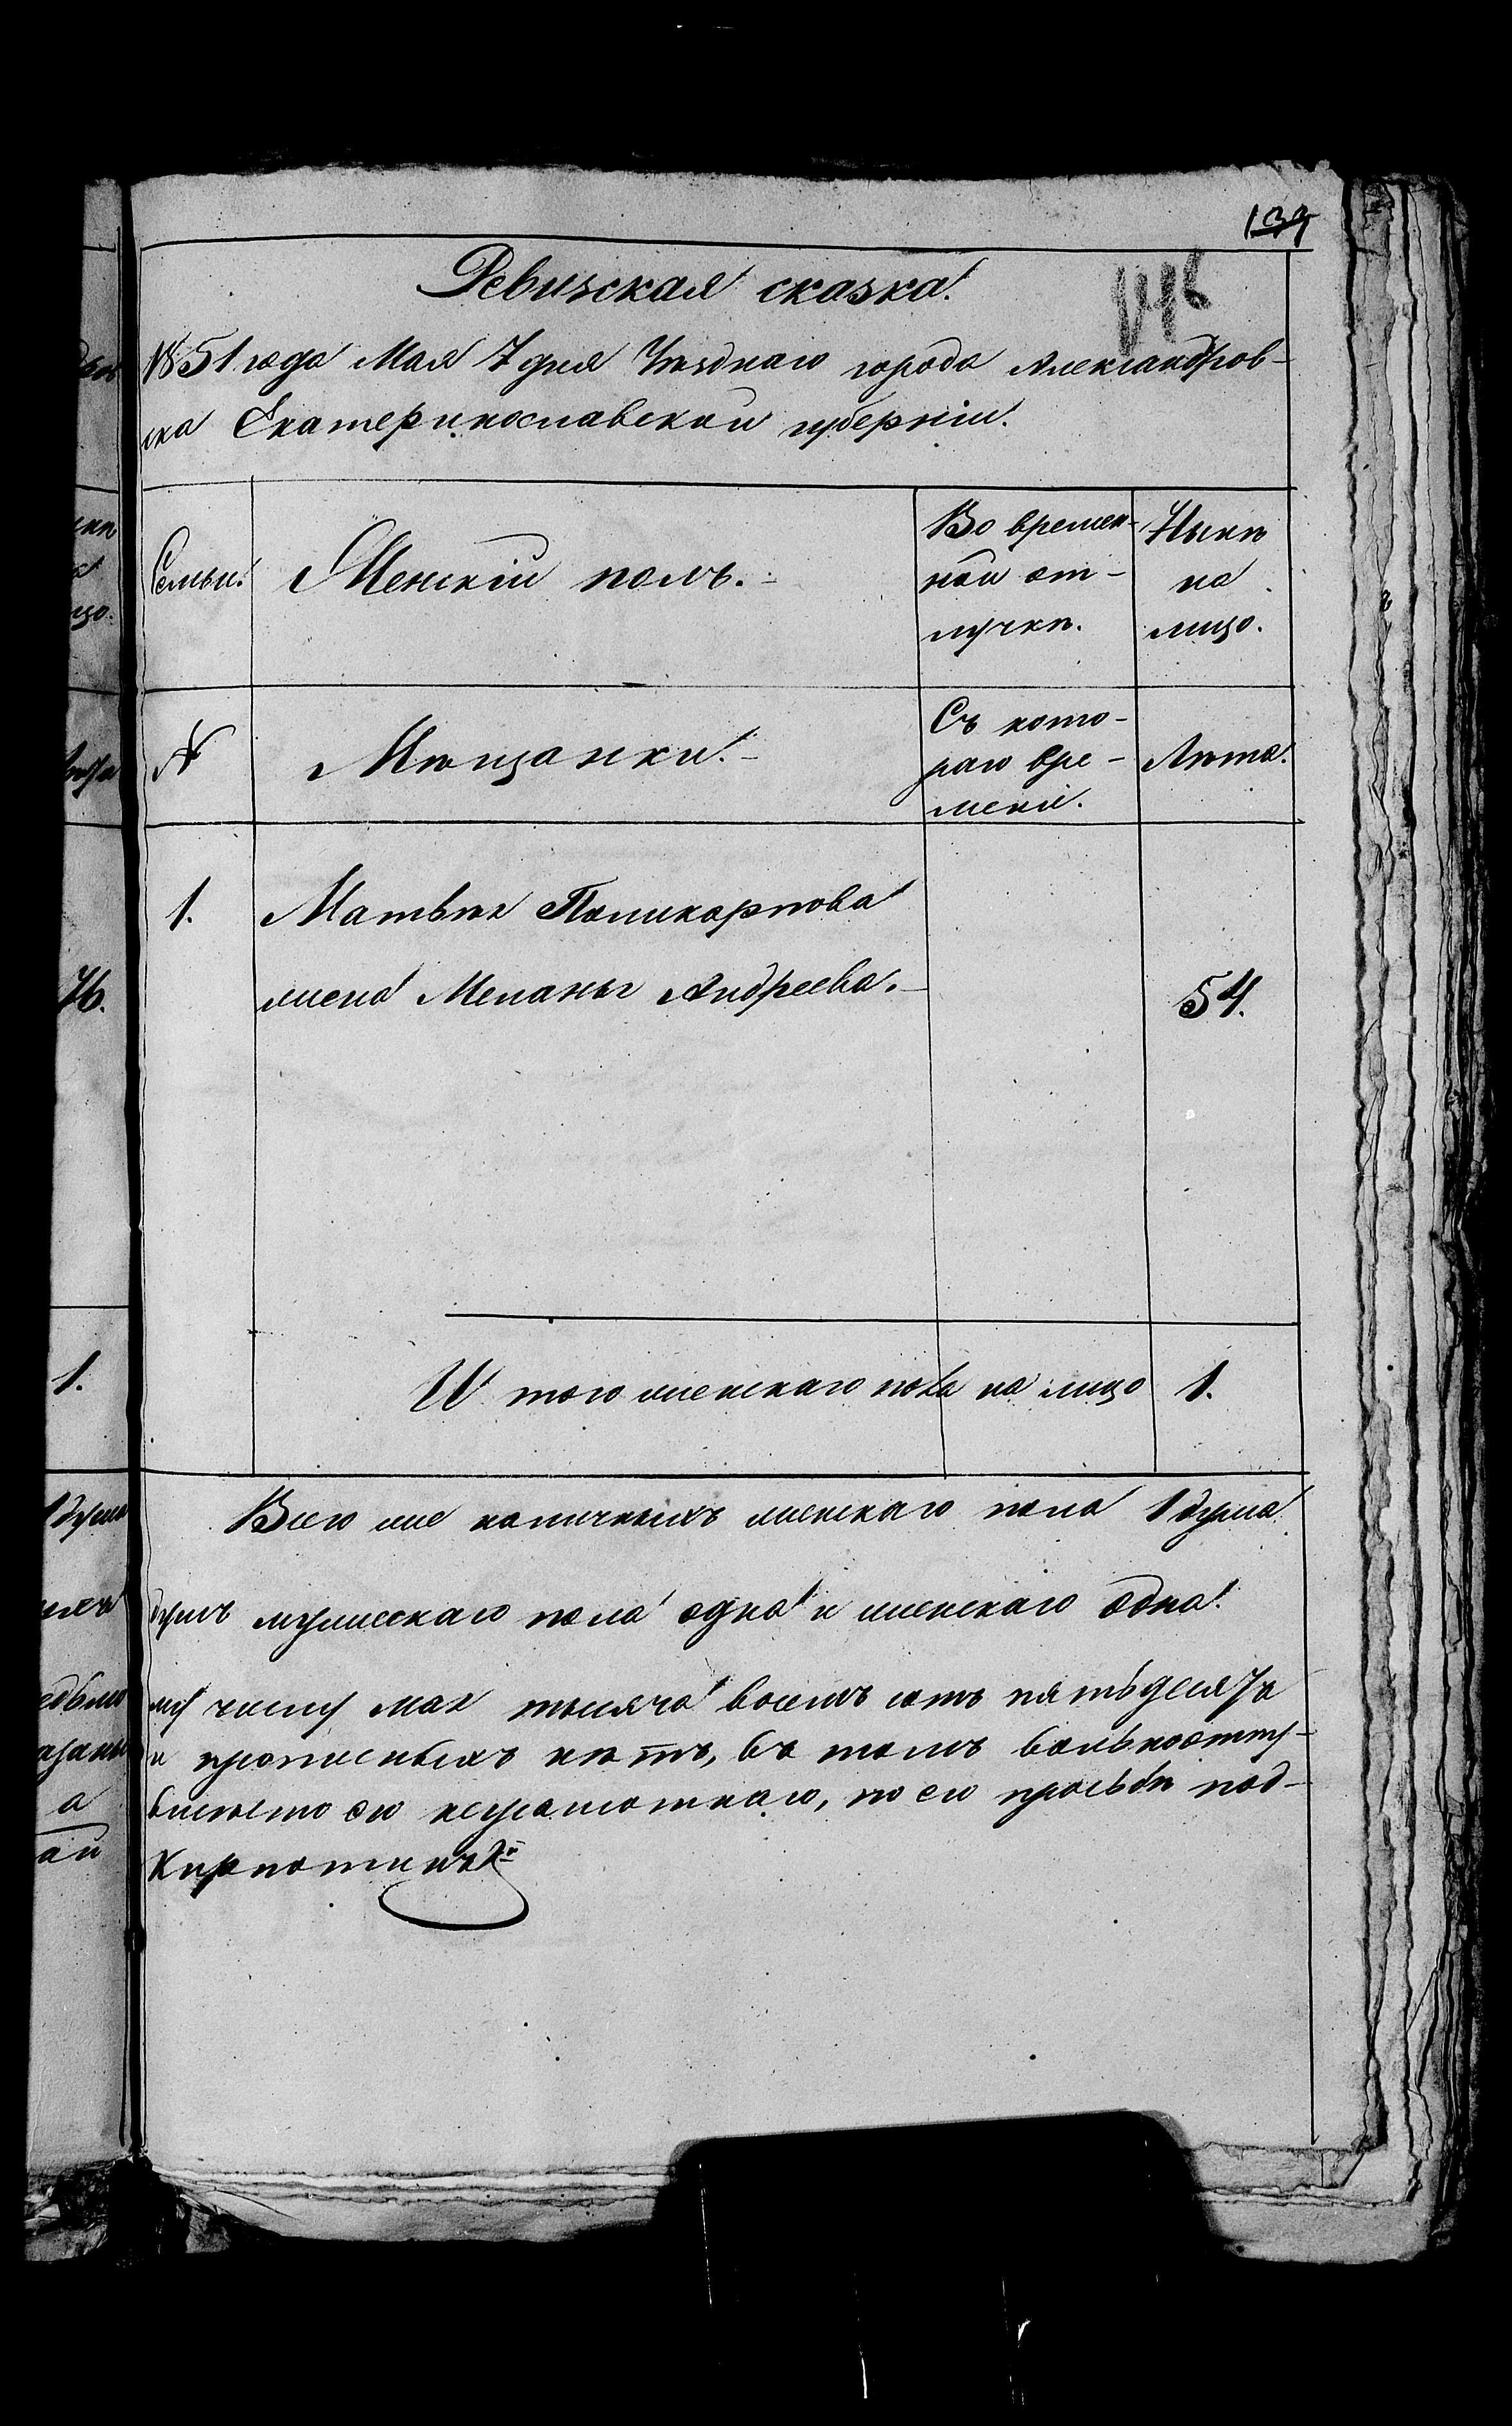 139
146
Ревизская сказка.
1851 года Мая 7 дня Уѣзднаго города Александров-
ска Екатеринославской губерніи.
Семьи.
Женскій полъ.
Во времен-
ной от-
лучкѣ.
Нынѣ
на
лицо.
№
Мѣщанки.
Съ кото-
раго вре-
мени.
Лѣта.
1.
Матвѣя Поликарпова
жена Меланья Андреева.
54.
И того женскаго пола на лицо 1.
Всего же наличныхъ женскаго пола 1 душа
душъ мужескаго пола одна и женскаго одна.
му числу Мая тысяча восемь сотъ пятьдесятъ
и прописныхъ нѣтъ, въ томъ вольноотпу-
его неграмотнаго, по его просьбѣ под-
76.
1.
1 душа